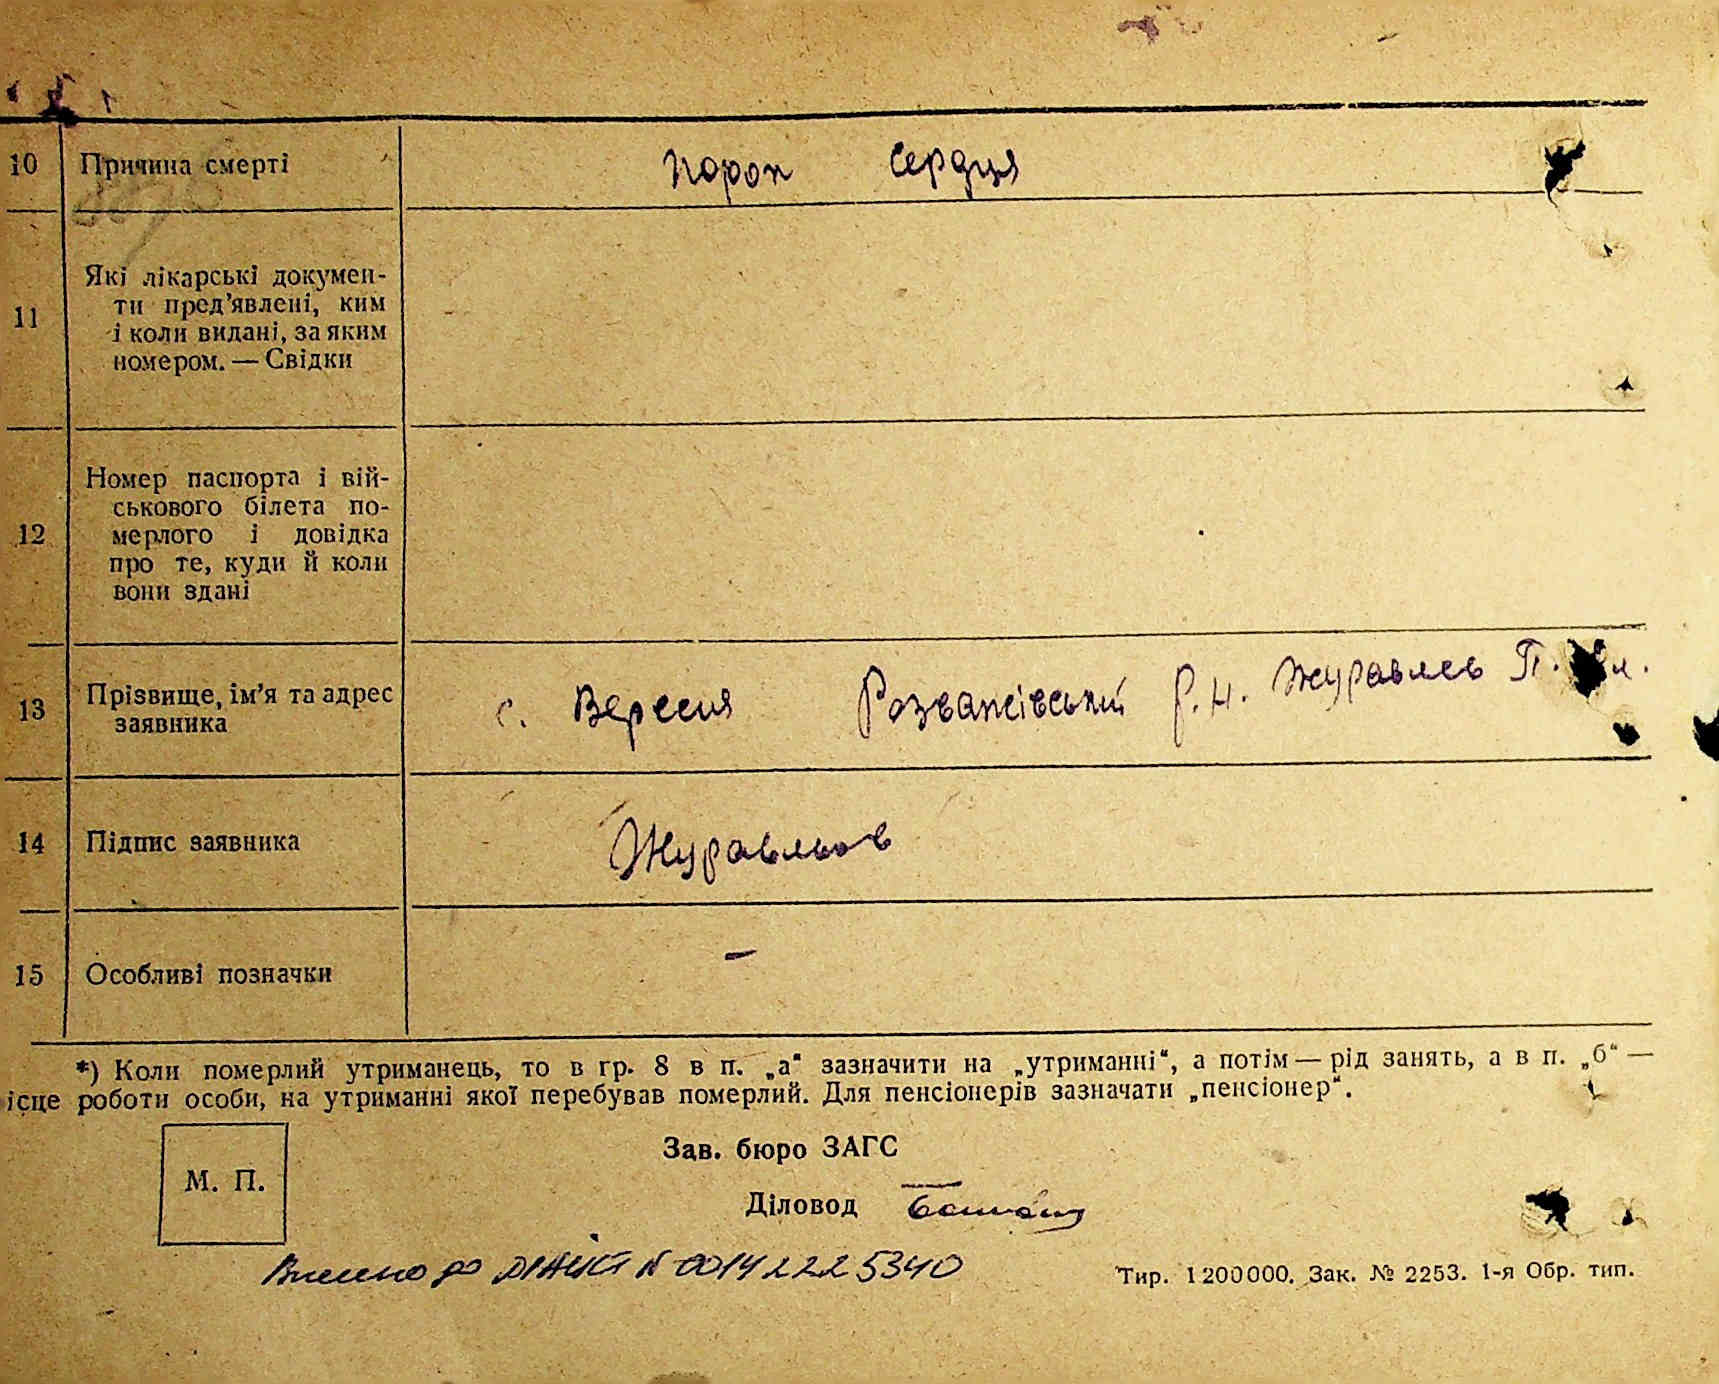 10 Причина смерті порок сердця
11 Які лікарські докумен-
ти пред’явлені, ким
і коли видані, за яким
номером. — Свідки
12 Номер паспорта і вій-
ськового білета по-
мерлого і довідка
про те, куди й коли
вони здані
13 Прізвище, ім’я та адрес
заявника
с. Вересня Розважівський р.н. Журавлев П.
14 Підпис заявника Журавльов
15 Особливі позначки –
*) Коли померлий утриманець, то в гр. 8 в п. „а“ зазначити на „утриманні“, а потім — рід занять, а в п. „б“ —
ісце роботи особи, на утриманні якої перебував померлий. Для пенсіонерів зазначати „пенсіонер“.
Зав. бюро ЗАГС
М. П.
Діловод
Внесено до ДРАЦСГ № 00142225340
Тир. 1200000. Зак. № 2253. 1-я Обр. тип.